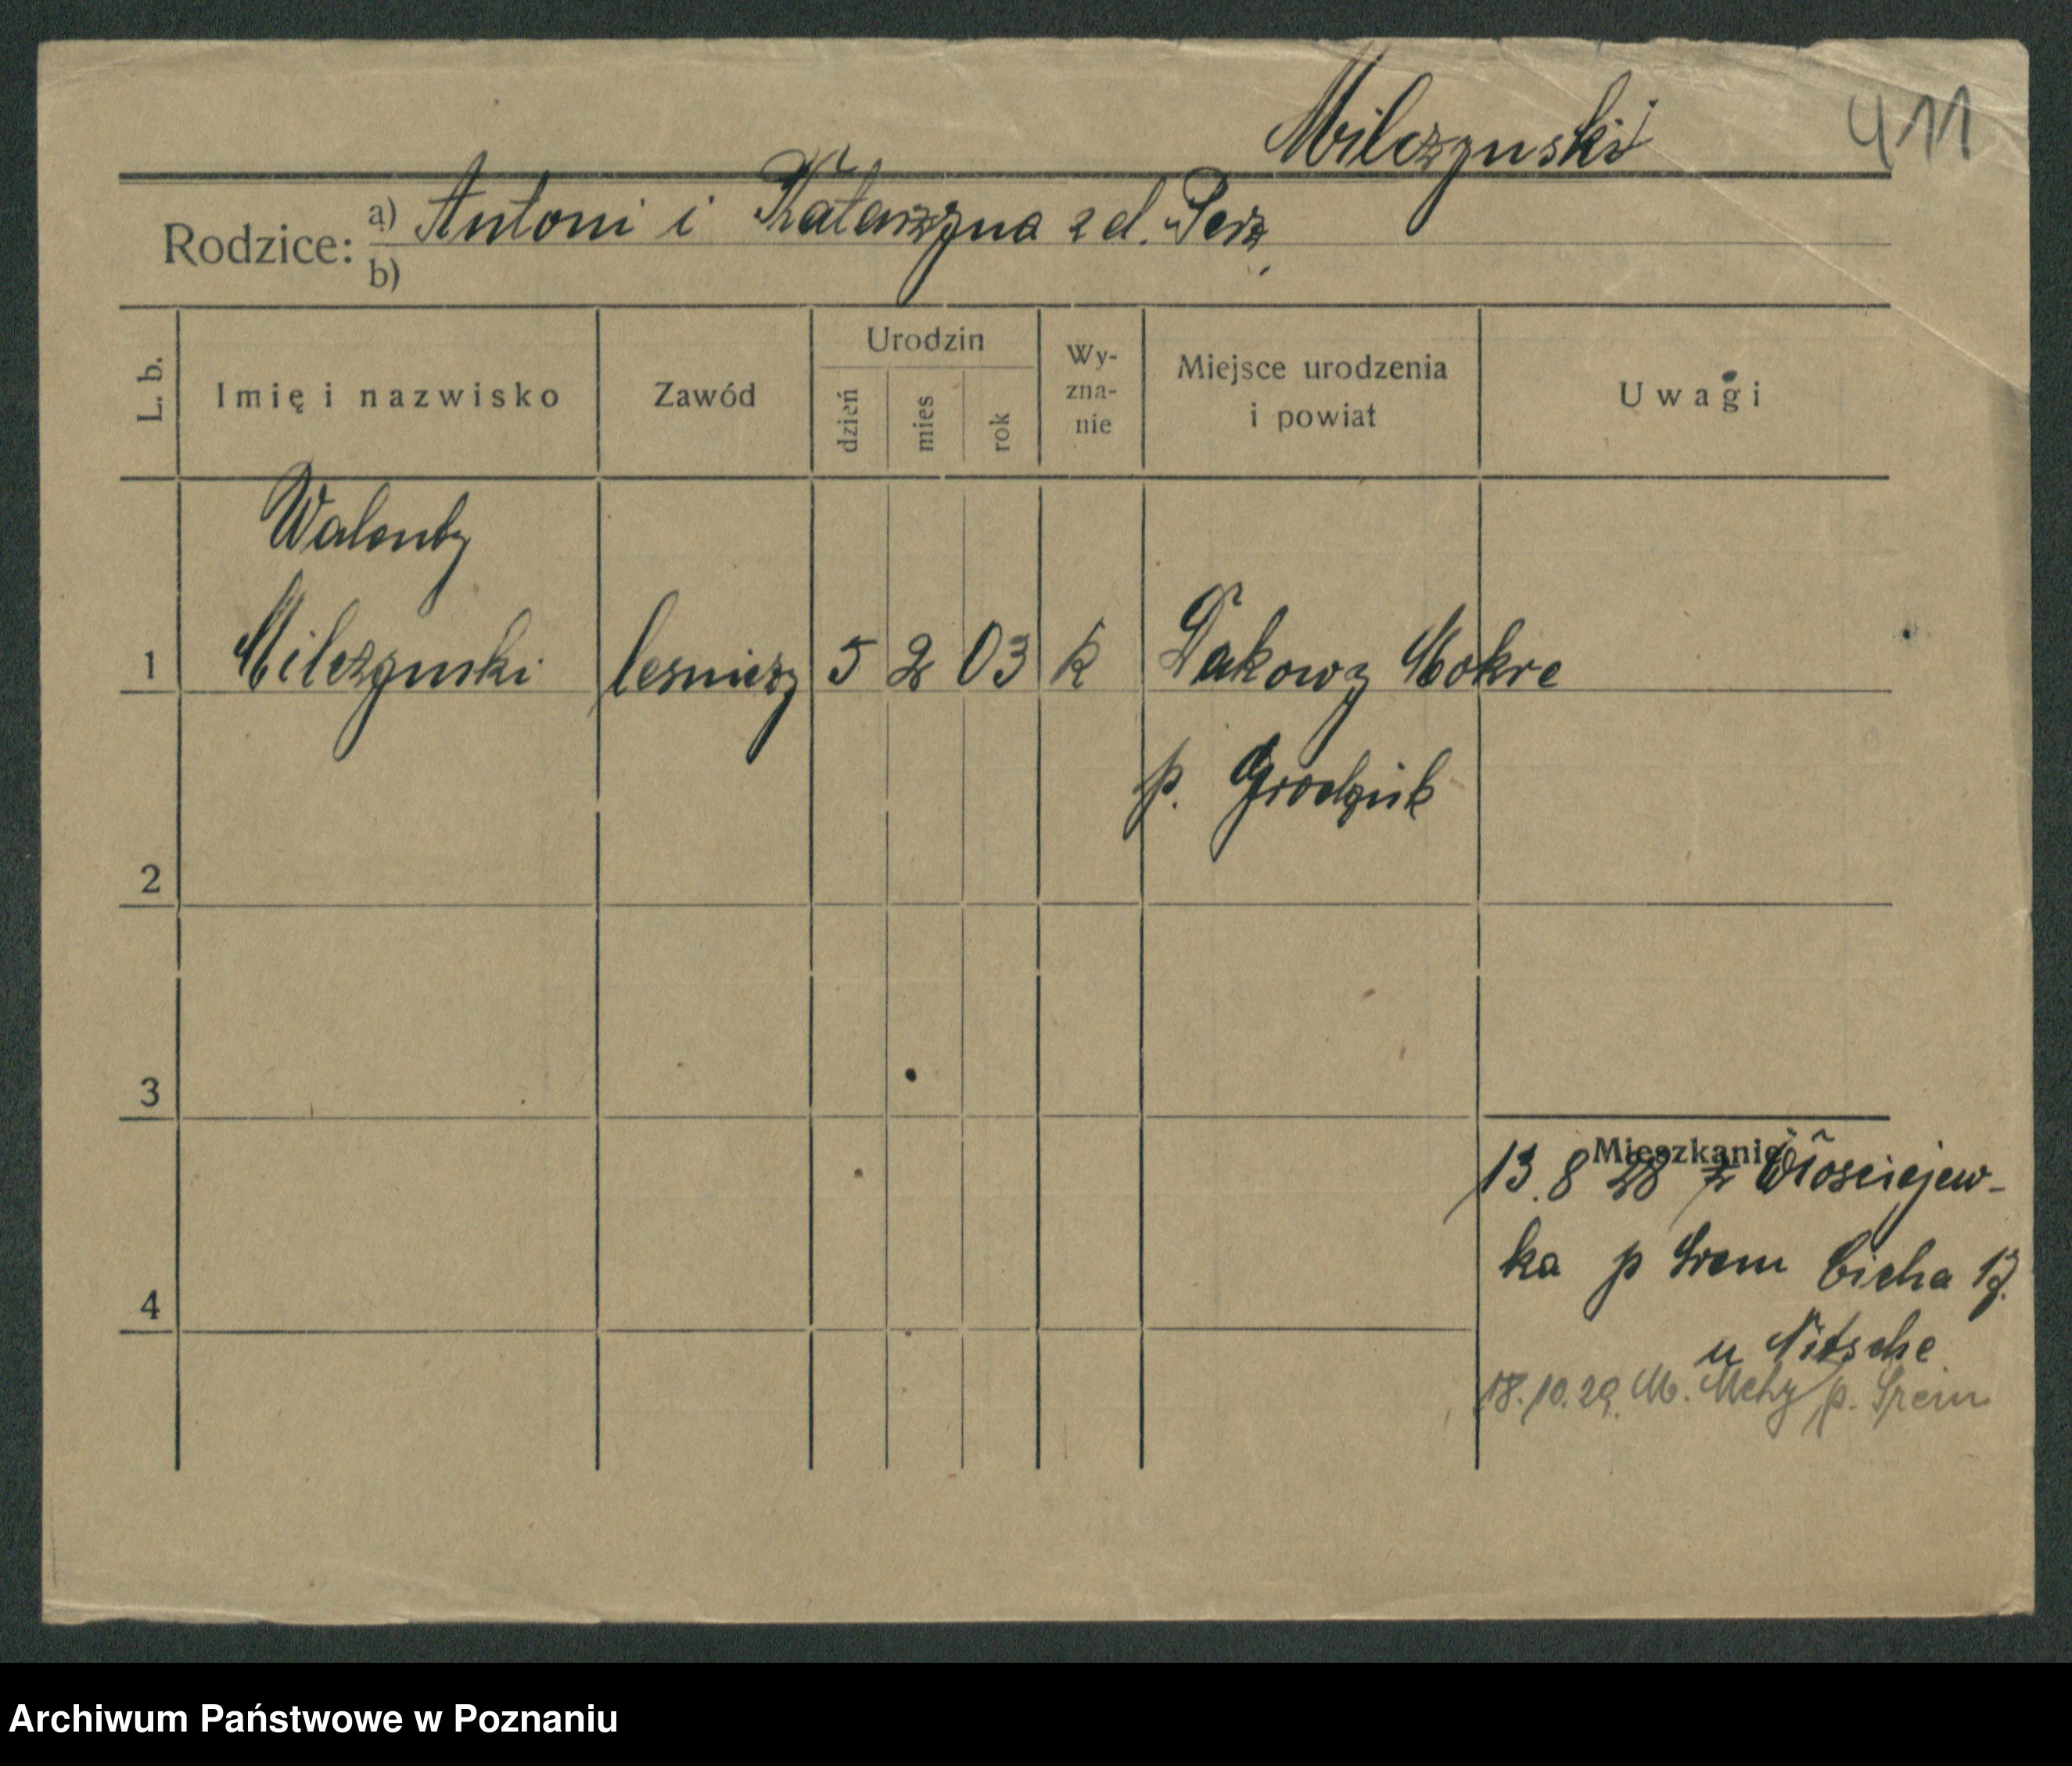 Milczynski
411
Rodzice: a) Antoni i Katarzyna z d. Perz
b)
L. b.
Imię i nazwisko
Zawód
Urodzin
dzień
mies
rok
Wy-
zna-
nie
Miejsce urodzenia
i powiat
Uwagi
Walenty
1 Milczynski lesniczy 5 2 03 k Dakowy Mokre
p. Grodzisk
2
3
Mieszkanie
13.8 28 z Włosciejew-
ka p Srem Cicha 17.
4
u Nitsche
18.10.29. M. Mchy p. Srem
Archiwum Państwowe w Poznaniu